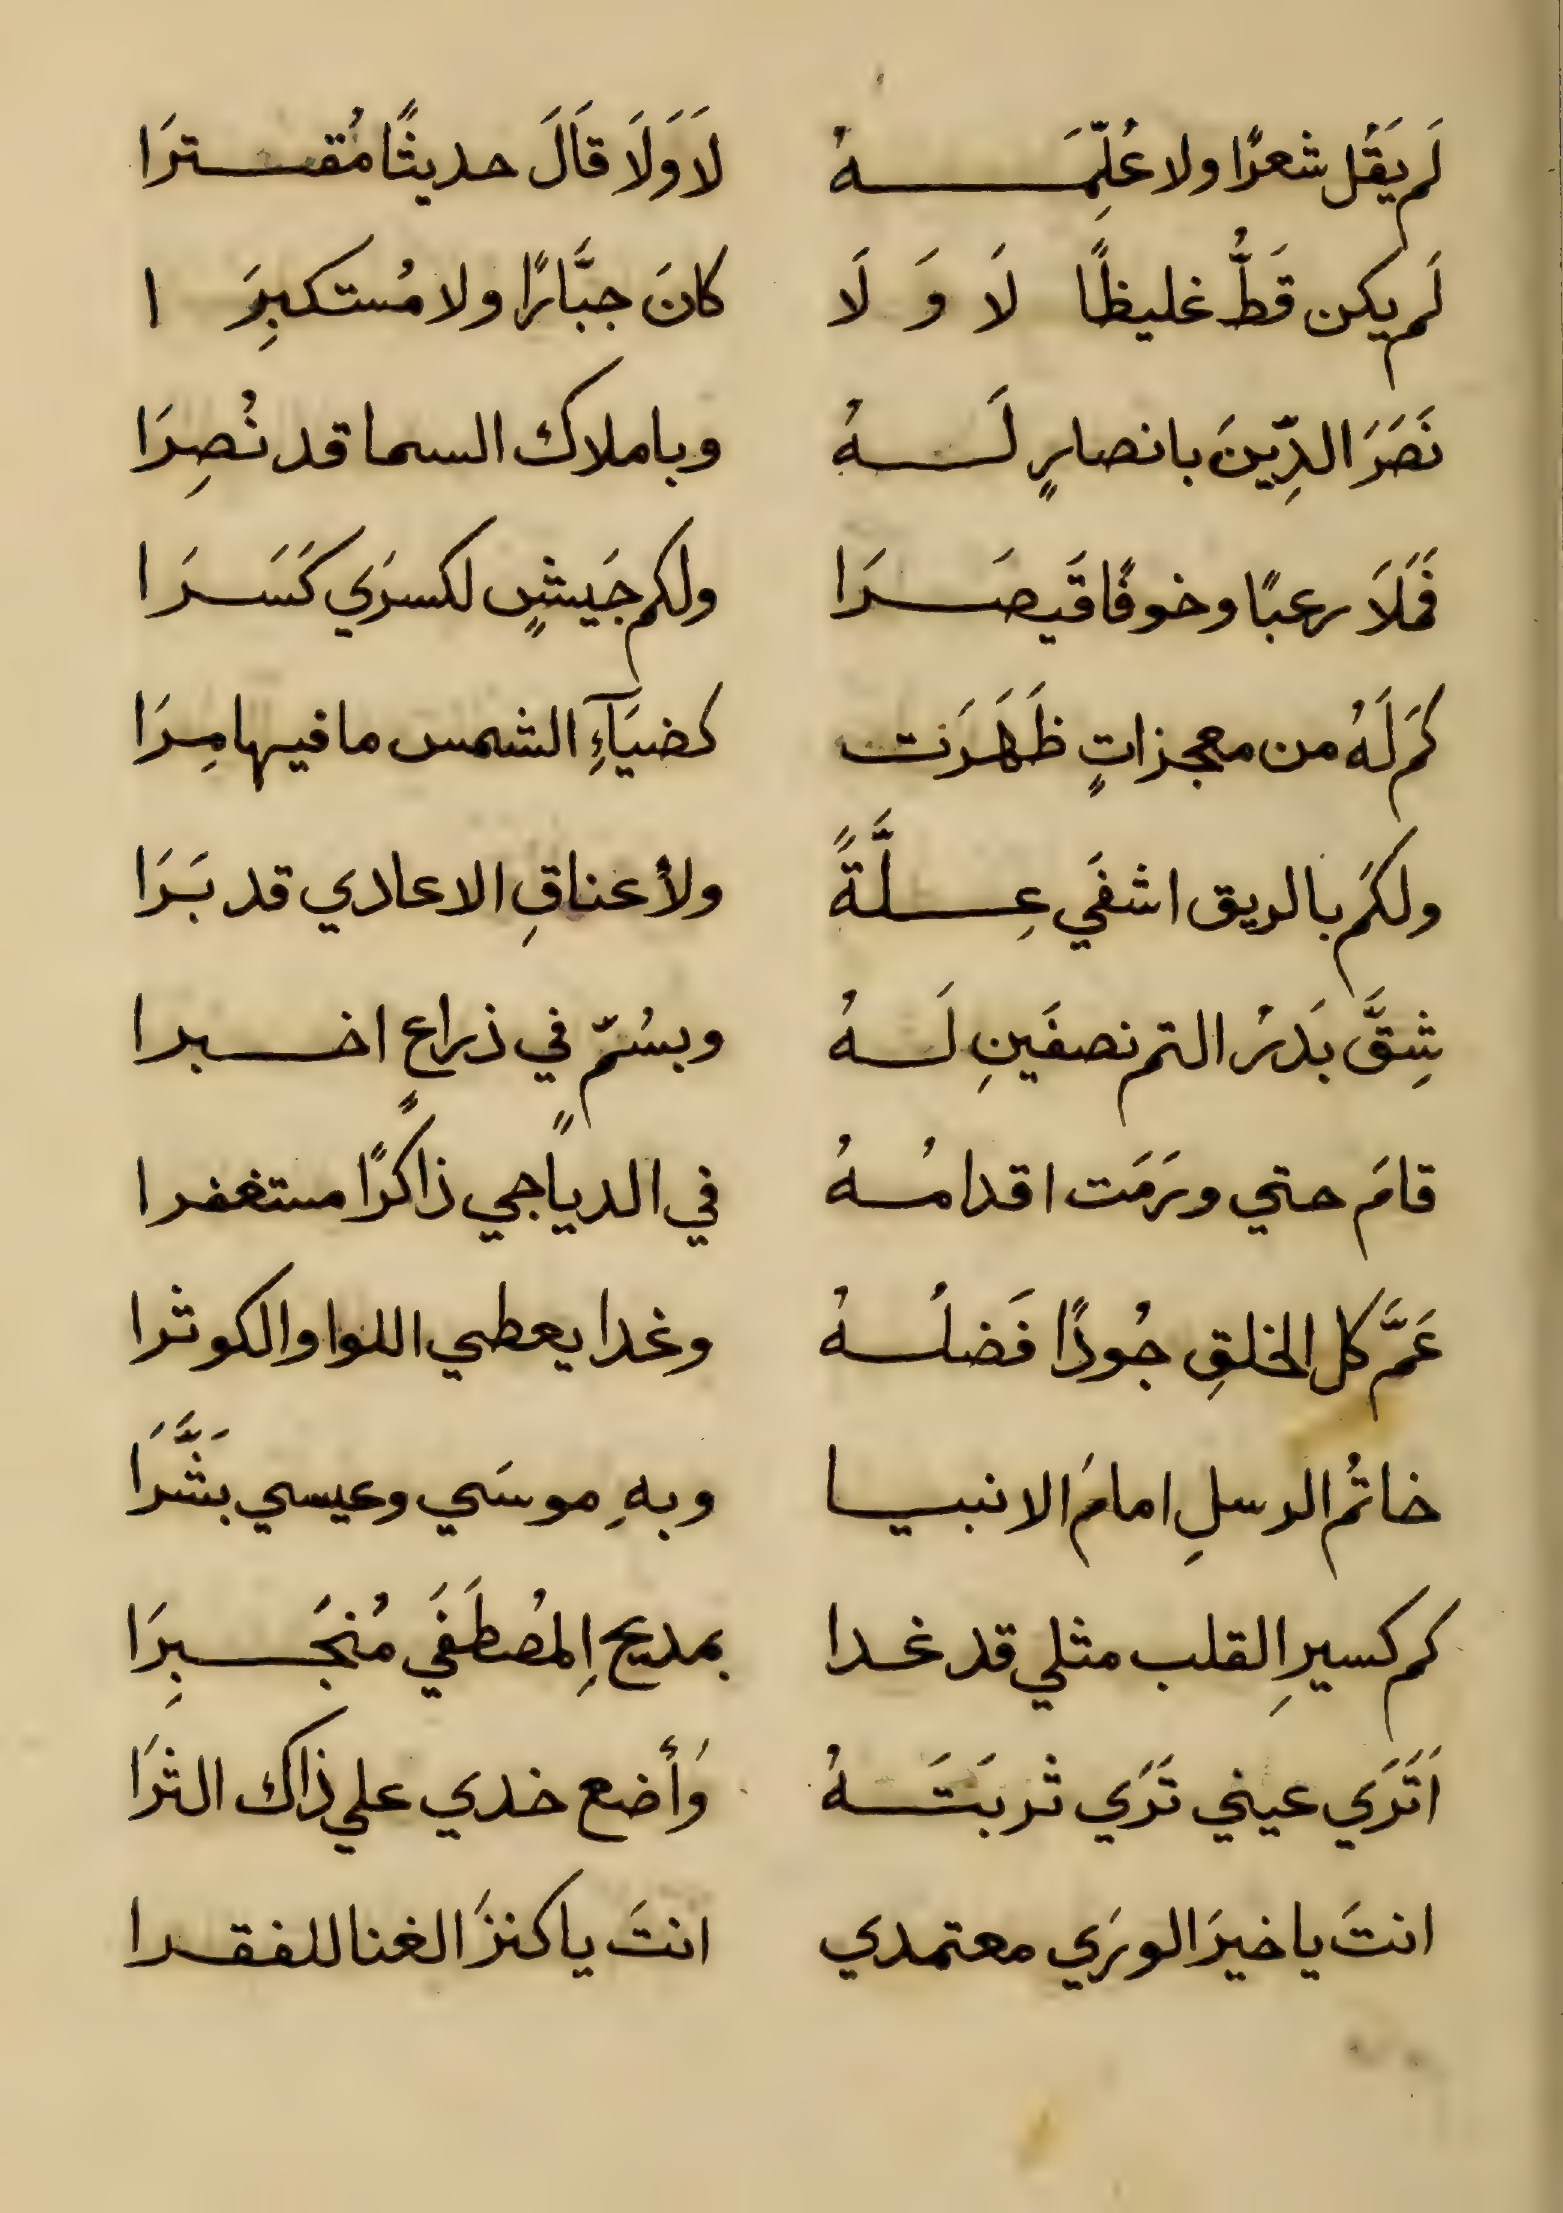 لَم يَقُل شعرًا ولا عُلِّمَهُ لَا وَلَا قَالَ حديثًا مُقترَا
لَم يكن قَطُّ غليظًا لَا وَ لَا كانَ جبَّارًا ولا مُستكبِرَا
نَصَرَ الدِّينَ بانصارٍ لَهُ وباملاك السما قد نُصِرَا
فَمَلَا رعبًا وخوفًا قَيصَرَا ولكم جَيشٍ لكسرَي كَسَرَا
كَم لَهُ من معجزاتٍ ظَهَرَت كضيَآءِ الشمس ما فيها مِرَا
ولكَم بالريق اشفَي عِلَّةً ولأعناقِ الاعادي قد بَرَا
شِقَّ بَدرُ التم نصفَينِ لَهُ وبسُمٍّ في ذراعٍ اخبرا
قامَ حتي ورَمَت اقدامُهُ في الدياجي ذاكرًا مستغفرا
عَمَّ كل الخلقِ جُودًا فَضلُهُ وغدا يعطي اللوا والكوثرا
خاتُم الرسلِ امامَ الانبيا وبهِ موسَي وعيسي بَشَّرَا
كم كسيرِ القلب مثلي قد غدا بمديحِ المُصطَفَي مُنجَبِرَا
اَتَرَي عيني تَرَي تُربَتَهُ وَأضع خدي علي ذاك الثرَا
انتَ يا خيرَ الورَي معتمدي انتَ يا كنزَ الغنا للفقرا